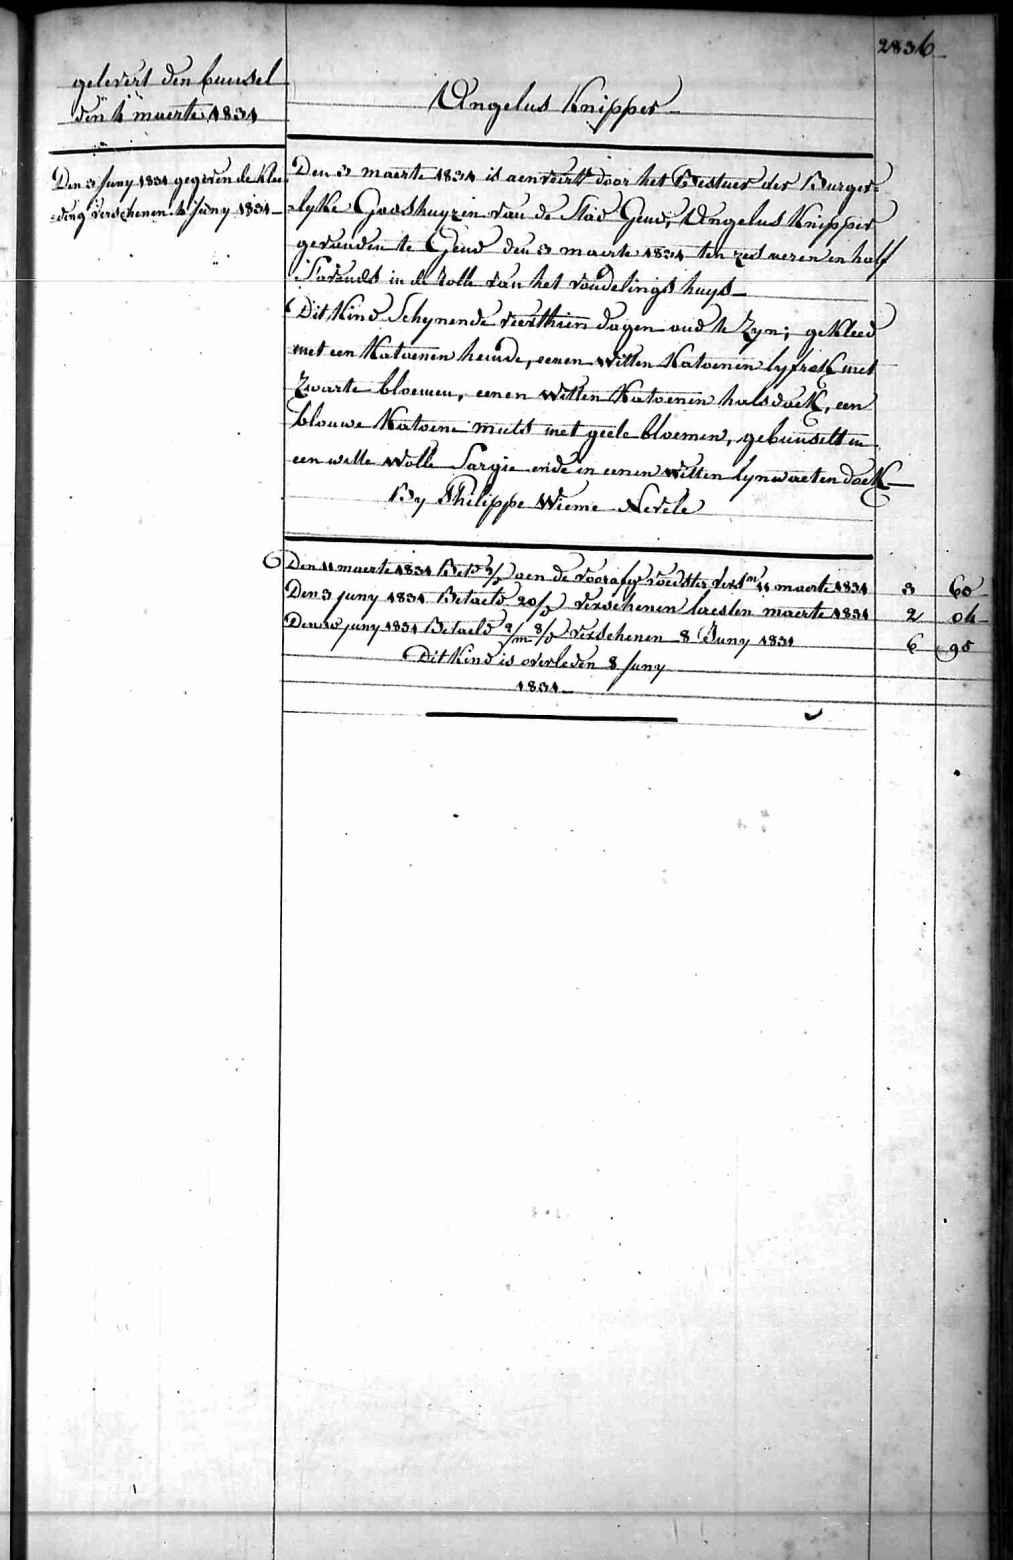 2836
gelevert den bunsel
den 4 maerte 1831
Angelus Knipper
Den 3 Juny 1831 gegeven de klee-
=ding verschenen 4 Juny 1831
Den 3 maerte 1831 is aenveirt door het Bestuer der Burger=
=lyke Godshuyzen van de Stad Gend, Angelus Knipper
gevonden te Gend den 3 maerte 1831 ten zes uren en half
s'avonds in de rolle van het vondelingshuys
Dit Kind Schynende veerthien dagen oud te zyn; gekleed
met een Katoenen hemde, eenen witten Katoenen lyfrok met
zwarte bloemen, eenen witten Katoenen halsdoek, een
blouwe Katoene muts met geele bloemen, gebunselt in
een witte wolle Sargie ende in eenen witten lynwaeten doek
By Philippe Wieme Nevele
Den 11 maerte 1831 aen de voedster 11 maerte 1831 3 60
Den 3 juny 1831 Betaeld 20/d verschenen laesten maerte 1831 2 04
juny 1831 Betaeld 2/m 8/d verschenen 8 Juny 1831 6 95
Dit Kind is overleden 8 Juny
1831